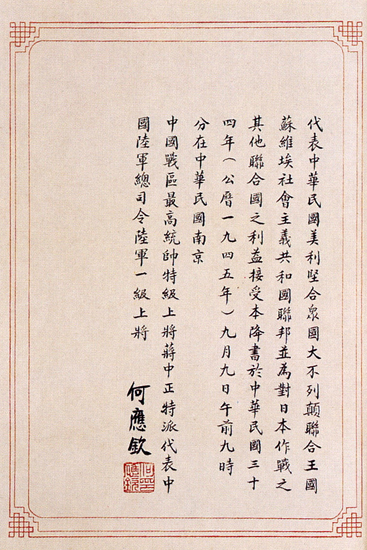 代表中華民國美利堅合衆國大不列顛聯合王國
蘇維埃社會主義共和國聯邦並為對日本作戰之
其他聯合國之利益接受本降書於中華民國三十
四年（公曆一九四五年）九月九日午前九時
分在中華民國南京
中國戰區最高統帥特級上將蔣中正特派代表中
國陸軍總司令陸軍一級上將
何應欽